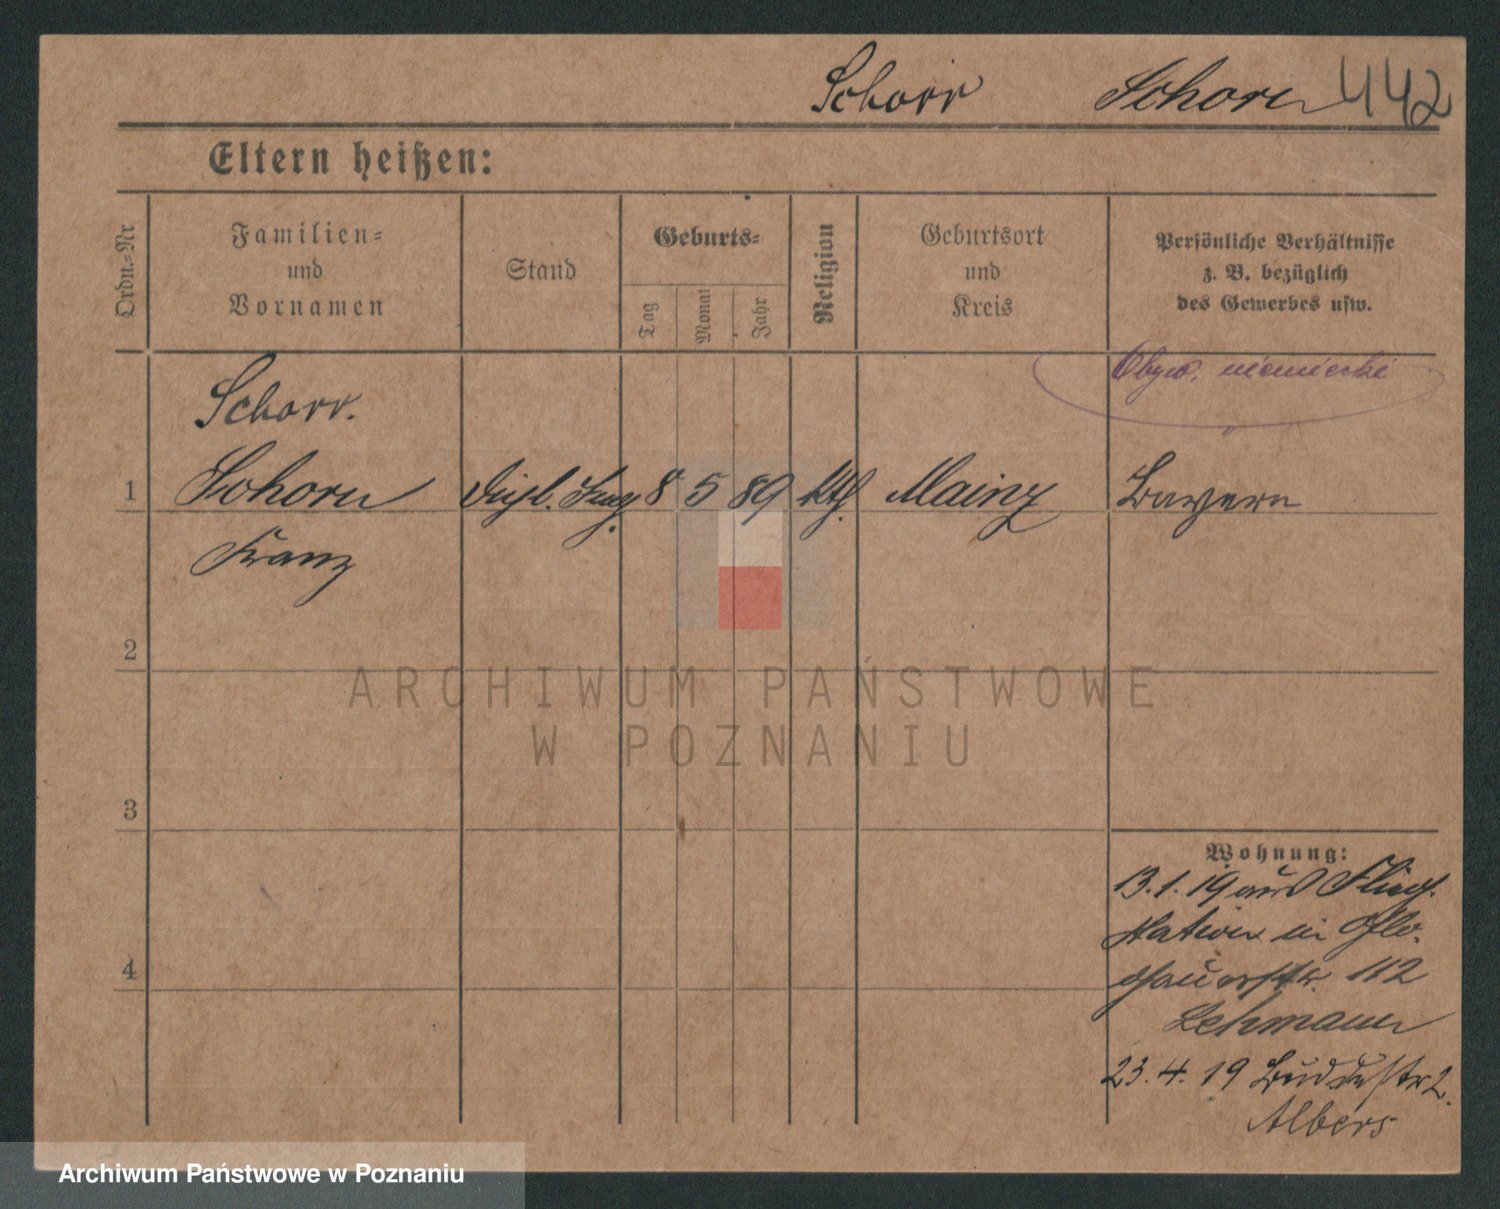 Schorr Schorn 442
Eltern heißen:
Ordn.-Nr
Familien-
und
Vornamen
Stand
Geburts-
Tag
Monat
Jahr
Religion
Geburtsort
und
Kreis
Persönliche Verhältnisse
z. B. bezüglich
des Gewerbes usw.
Obyw. niemiecki
Schorr.
1 Schorn Dipl. Ing. 8 5 89 kth. Mainz Bayern
Franz
2
ARCHIWUM PAŃSTWOWE
W POZNANIU
3
Wohnung:
13.1.19 aus Flieg.
station in Glo-
gauerstr. 112
Lehmann
4
23.4.19 Buddestr 2.
Albers
Archiwum Państwowe w Poznaniu